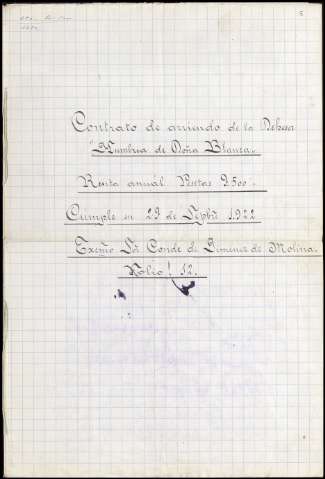 Contrato de arriendo de la Dehesa
"Humbria de Doña Blanca.
Renta anual Pesetas 9500.
Cumple en 29 de Sepbre 1.922
Excmo Sr Conde de Gimenez de Molina.
12.